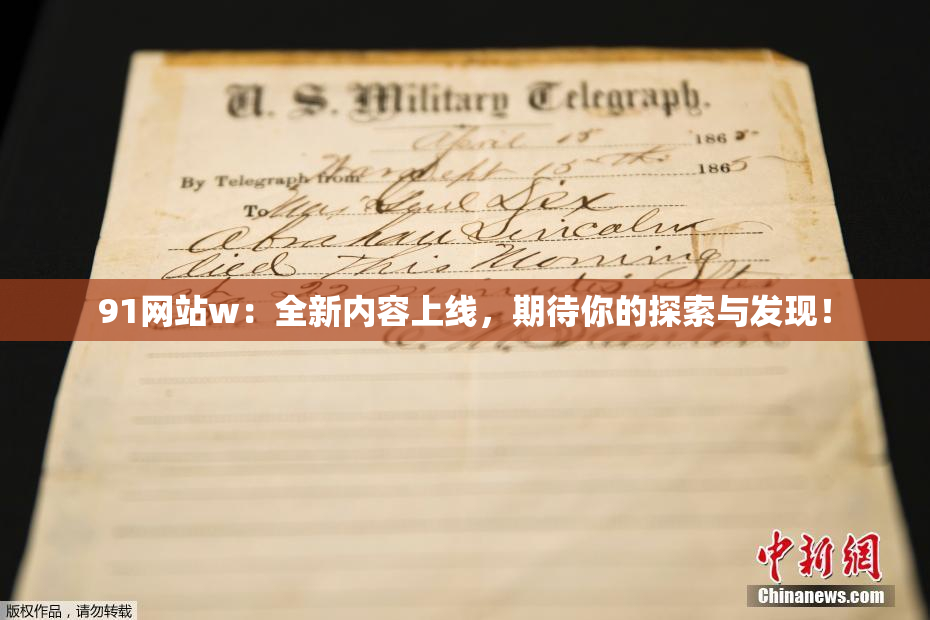 U. S. Military Telegraph.
April 15 1865
By Telegraph from War Dept 15th 1865
To Maj Genl Dix
Abraham Lincoln
died This Morning
at 22 minutes after
91网站w：全新内容上线，期待你的探索与发现！
E. M. Stanton
中新网
Chinanews.com
版权作品，请勿转载